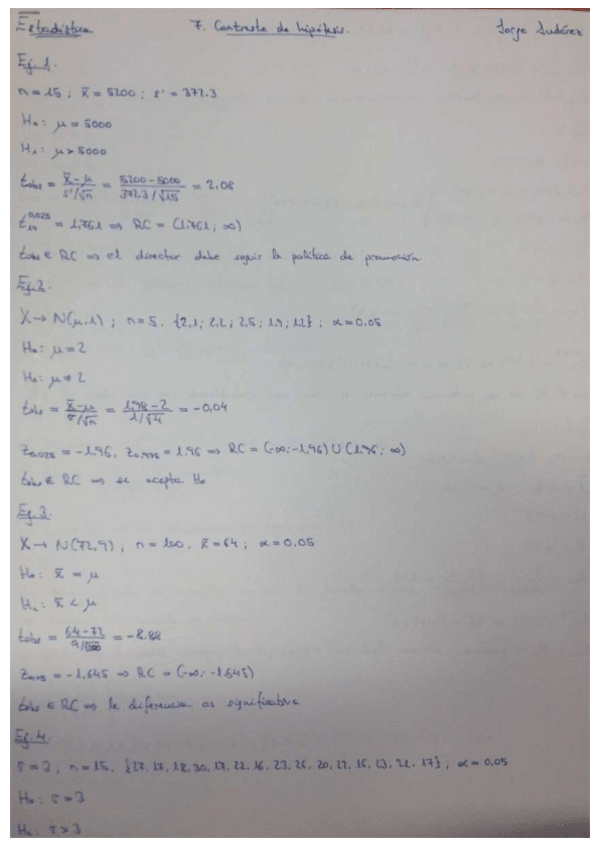 Estadística 7. Contraste de hipótesis. Jorge Suárez
Ej. 1.
n = 15 ; x̄ = 5200 ; s' = 372.3
H₀: μ = 5000
H₁: μ > 5000
t_obs = (x̄ - μ)/(s'/√n) = (5200 - 5000)/(372.3/√15) = 2.08
t₁₄^0,025 = 1.761 ⇒ RC = (1.761 ; ∞)
t_obs ∈ RC ⇒ el director debe seguir la política de promoción.
Ej. 2.
X → N(μ,1) ; n = 5. {2,1; 2,2; 2,5; 1,9; 1,2} ; α = 0.05
H₀: μ = 2
H₁: μ ≠ 2
t_obs = (x̄ - μ)/(σ/√n) = (1,98 - 2)/(1/√4) = -0,04
z_0,025 = -1.96, z_0,975 = 1.96 ⇒ RC = (-∞; -1,96) ∪ (1.96; ∞)
t_obs ∉ RC ⇒ se acepta H₀
Ej. 3.
X → N(72,9) ; n = 100. x̄ = 64 ; α = 0,05
H₀: x̄ = μ
H₁: x̄ < μ
t_obs = (64 - 72)/(9/√100) = -8.88
z_0,05 = -1.645 ⇒ RC = (-∞; -1.645)
t_obs ∈ RC ⇒ la diferencia es significativa
Ej. 4.
σ = 3, n = 15. {27, 17, 18, 30, 17, 22, 16, 23, 26, 20, 22, 16, 23, 22, 17} ; α = 0,05
H₀: σ = 3
H₁: σ > 3